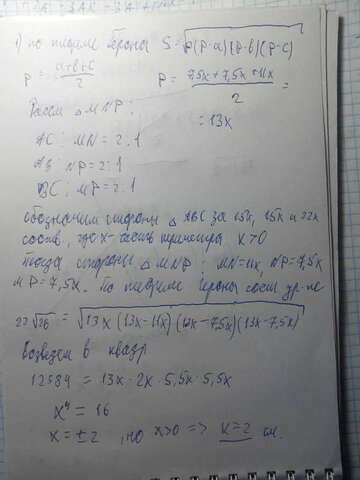 1) по теореме Герона S = √p(p-a)(p-b)(p-c)
p = a+b+c/2 p = 7,5x + 7,5x + 11x/2 =
= 13x
Рассм △ MNP:
AC : MN = 2:1
AB : NP = 2:1
BC : MP = 2:1
обозначим стороны △ ABC за 15x, 15x и 22x
соотв, где x - часть периметра x>0
Тогда стороны △ MNP: MN=11x, NP=7,5x
MP=7,5x. По теореме Герона сост ур-ие
22√26 = √13x(13x-11x)(13x-7,5x)(13x-7,5x)
Возведем в квадр
12584 = 13x · 2x · 5,5x · 5,5x
x⁴ = 16
x = ±2, но x>0 => x=2 см.